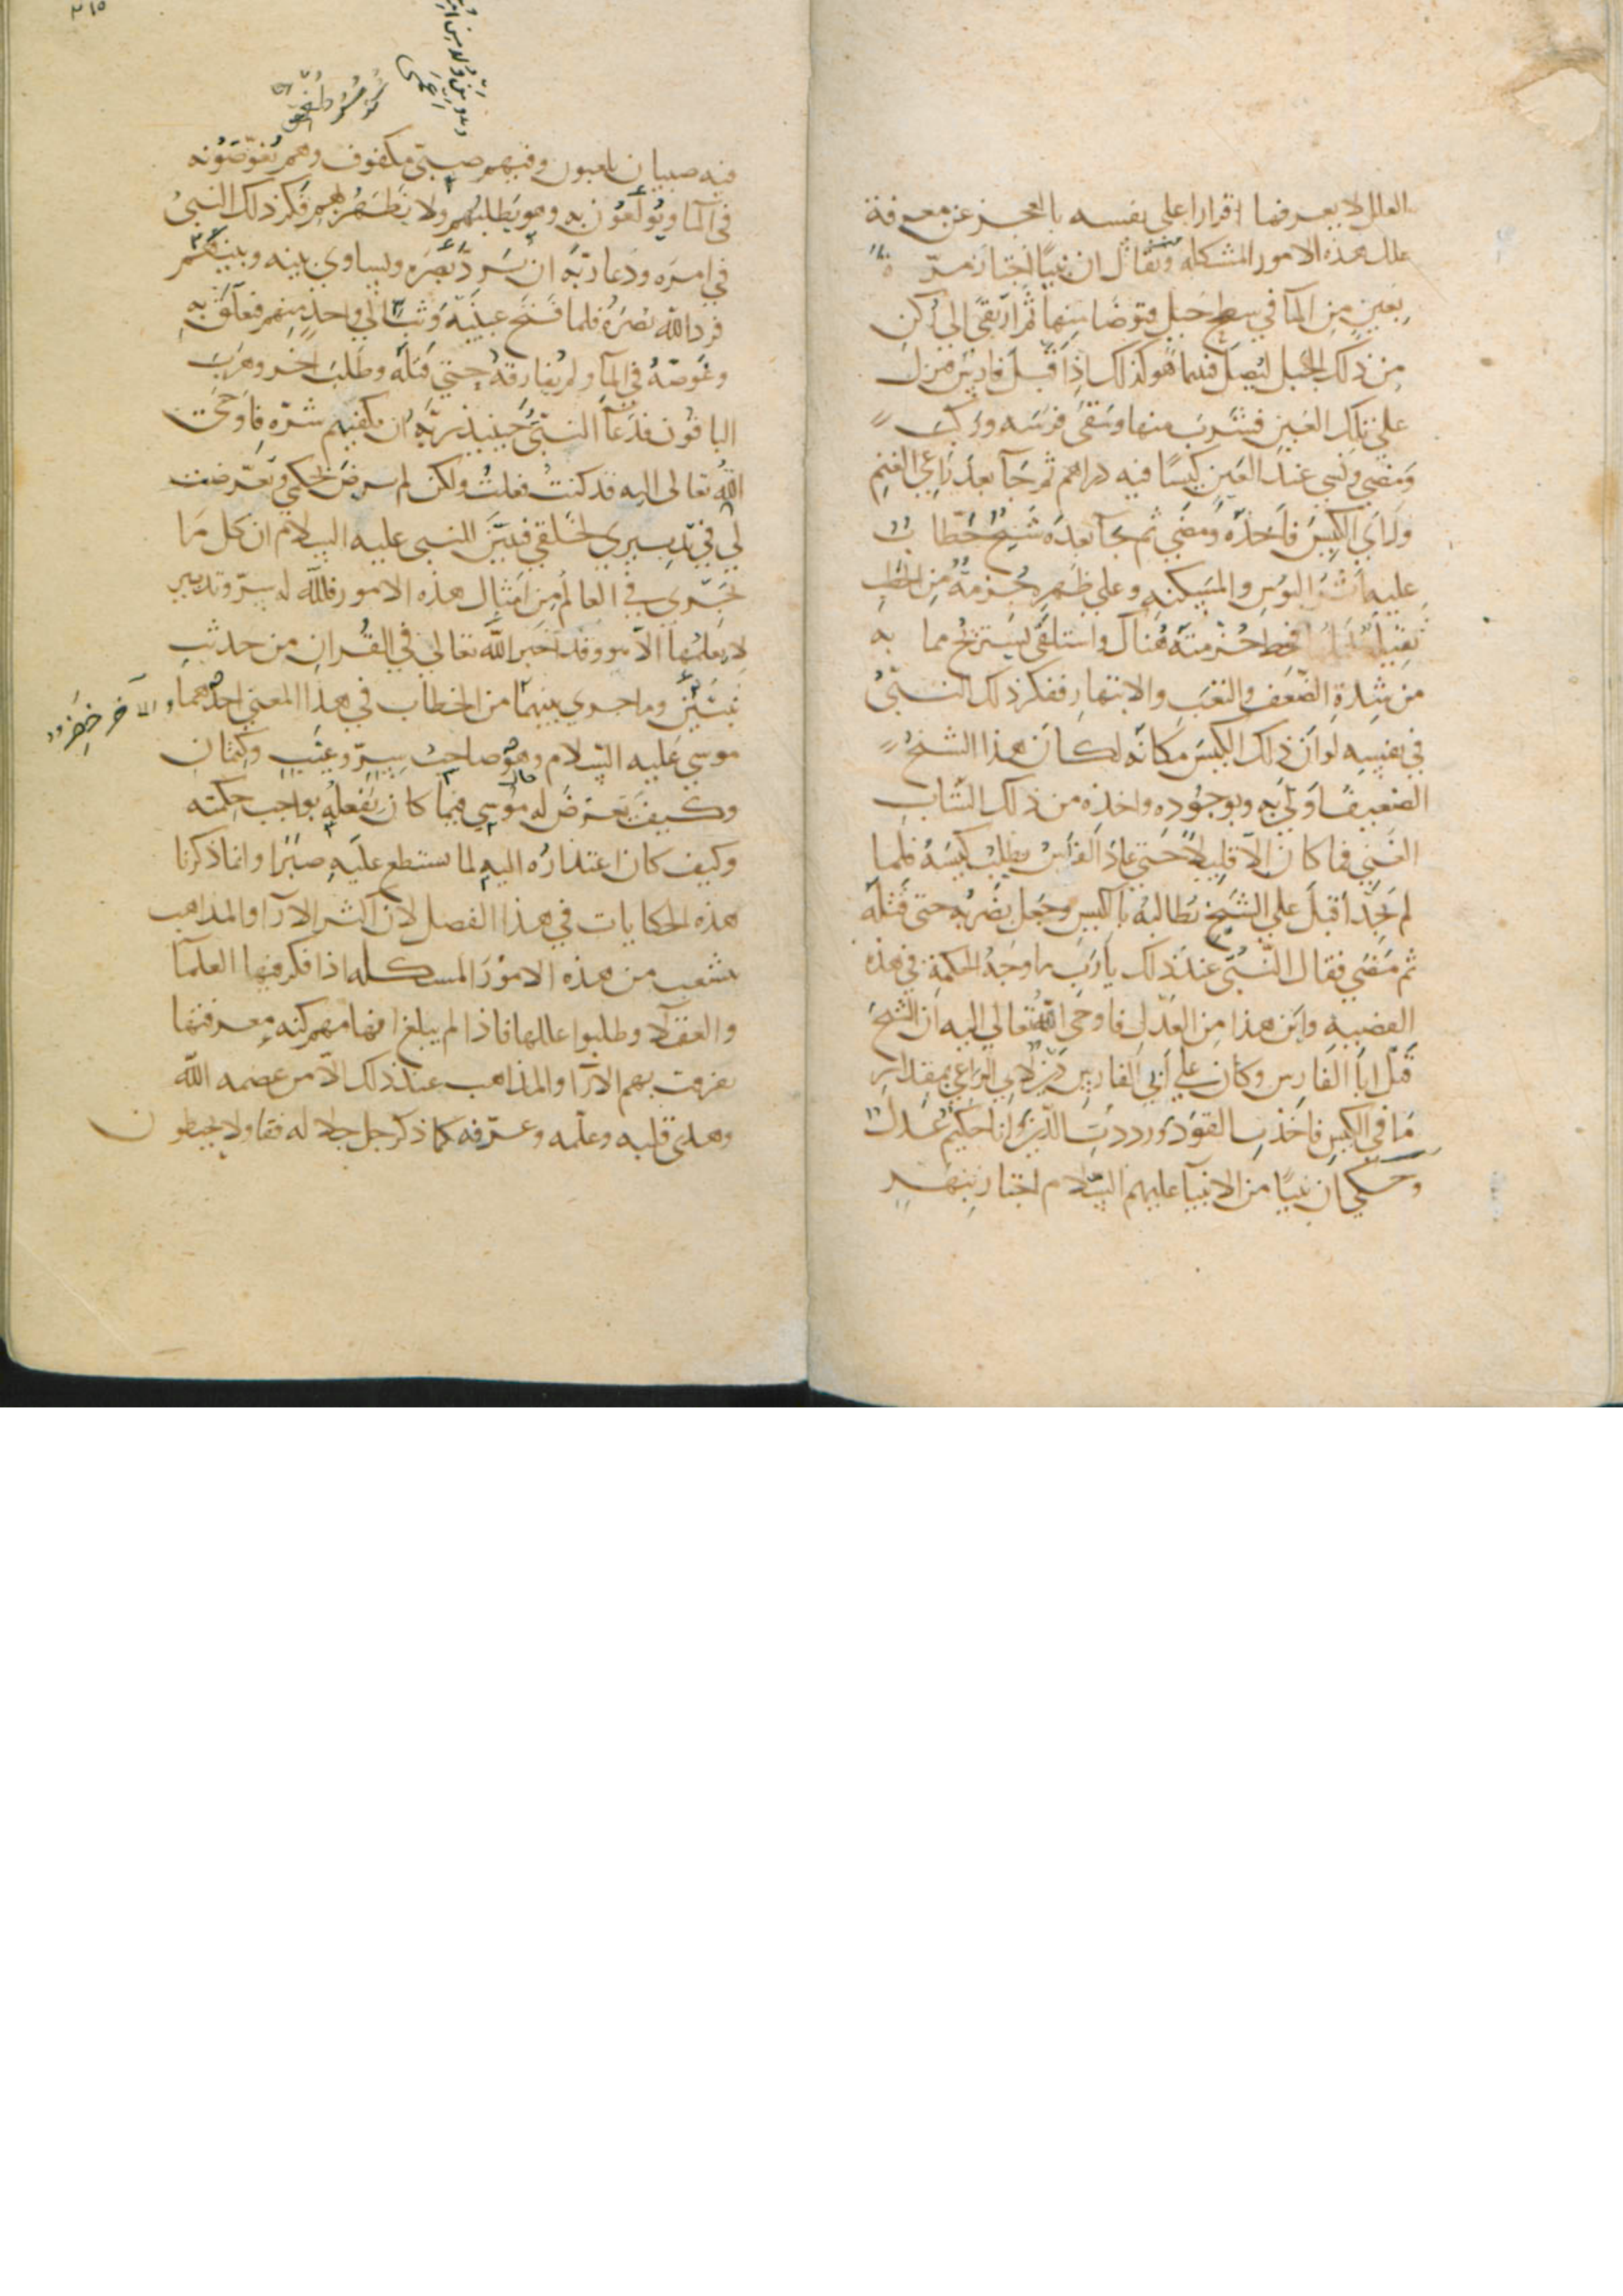 العلل لا يعرفها اقرارا على نفسه بالعجز عن معرفة
علل هذه الامور المشكلة ويقال ان نبيًا اجتاز مرّة
بعينٍ من المآ في سطح جبلٍ فتوضا منها ثم ارتقى الي ركن
من ذلك الجبل ليصلّ فبينما هو كذلك اذ اقبل فارس فنزل
علي تلك العين فشرب منها وسقى فرسه وركب
ومضي ونسي عند العين كيسًا فيه دراهم ثم جآ بعده راعي الغنم
وراي الكيس فاخذه ومضي ثم جآ بعده شيخ حطّابٌ
عليه اثر البوس والمسكنه وعلي ظهره حزمة من الحطب
ثقيلة فحط حزمته هناك واستلقى يستريح مما به
من شدة الضعف والتعب والانبهار ففكر ذلك النبيّ
في نفسه لو ان ذلك الكيس مكانه لكان هذا الشيخ
الضعيف اولي به وبوجوده واخذه من ذلك الشاب
الغني فما كان الّا قليلًا حتي عاد الفارس يطلب كيسه فلما
لم يجد اقبل علي الشيخ يطالبه بالكيس وجعل يضربه حتى قتله
ثم مضي فقال النّبيّ عند ذلك يا رب ما وجه الحكمة في هذه
القضية واين هذا من العدل فاوحى الله تعالي اليه ان الشيخ
قتل ابا الفارس وكان علي ابي الفارس دين لابي الراعي بمقدار
ما في الكيس فاخذت القود ورددت الدّين وانا حكيم عدل
وحكي ان نبيًا من الانبيآ عليهم السّلام اجتاز بنهرٍ
٢١٥
فيه صبيان يلعبون وفيهم صبيّ مكفوف وهم يغوّصونه
في المآ ويولعون به وهو يطلبهم ولا يظهر بهم ففكر ذلك النبيُ
في امره ودعا ربّه ان يردّ بصره ويساوي بينه وبينهم
فرد الله بصره فلما فتح عينيه وثب الي واحدٍ منهم فتعلّق به
وغوصّه في المآ ولم يفارقه حتي قتله وطلب اخر وهرب
الباقون فدعآ النبيّ حينيذ ربّه ان يكفيهم شرّه فاوحى
الله تعالى اليه قد كنت فعلت ولكن لم ترض بحكمي وتعرّضت
لي في تدبيري لخلقي فتبيّن للنبى عليه السلام ان كل ما
يجري في العالم من امثال هذه الامور فلله له سرّ وتدبير
لا يعلمها الّا هو وقد اخبر الله تعالي في القران من حديث
نبيّين وما جري بينهما من الخطاب في هذا المعني احدهما
والاخر خضر
موسي عليه السّلام وهو صاحب سرّ وغيب وكتمان
وكيف تعرّض له موسي فيما كان يفعله بواجب حكمته
وكيف كان اعتذاره اليه لما لم يستطع عليه صبرًا وانما ذكرنا
هذه الحكايات في هذا الفصل لان اكثر الارآ والمذاهب
تشعب من هذه الامور المسكله اذا فكر فيها العلمآ
والعقلآ وطلبوا عللها فاذا لم يبلغ افهامهم كنه معرفتها
تفرقت بهم الارآ والمذاهب عند ذلك الّا من عصمه الله
وهدى قلبه وعلّمه وعرّفه كما ذكر جل جلاله فقا ولا يحيطون